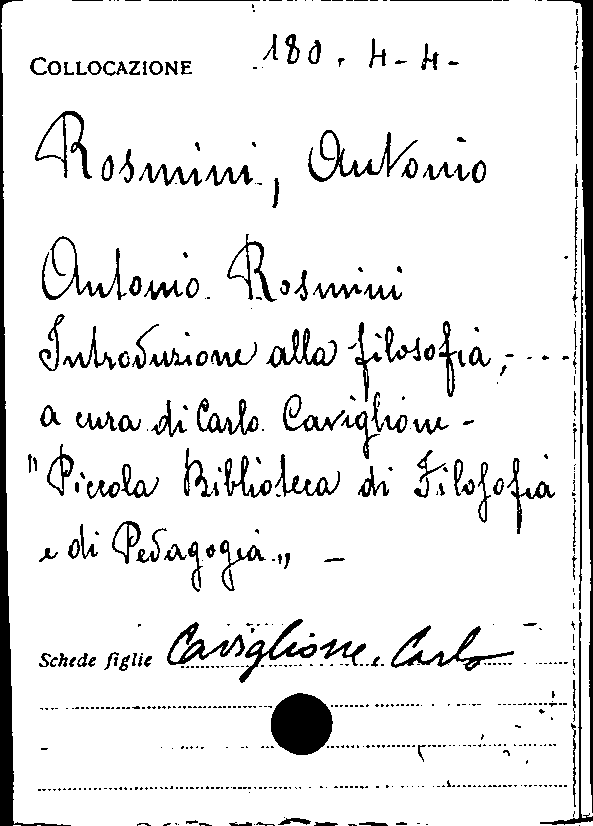 COLLOCAZIONE 180. 4-4-
Rosmini, Antonio
Antonio Rosmini
Introduzione alla filosofia, - ...
a cura di Carlo Caviglione -
"Piccola Biblioteca di Filosofia
e di Pedagogia„ -
Schede figlie Caviglione, Carlo